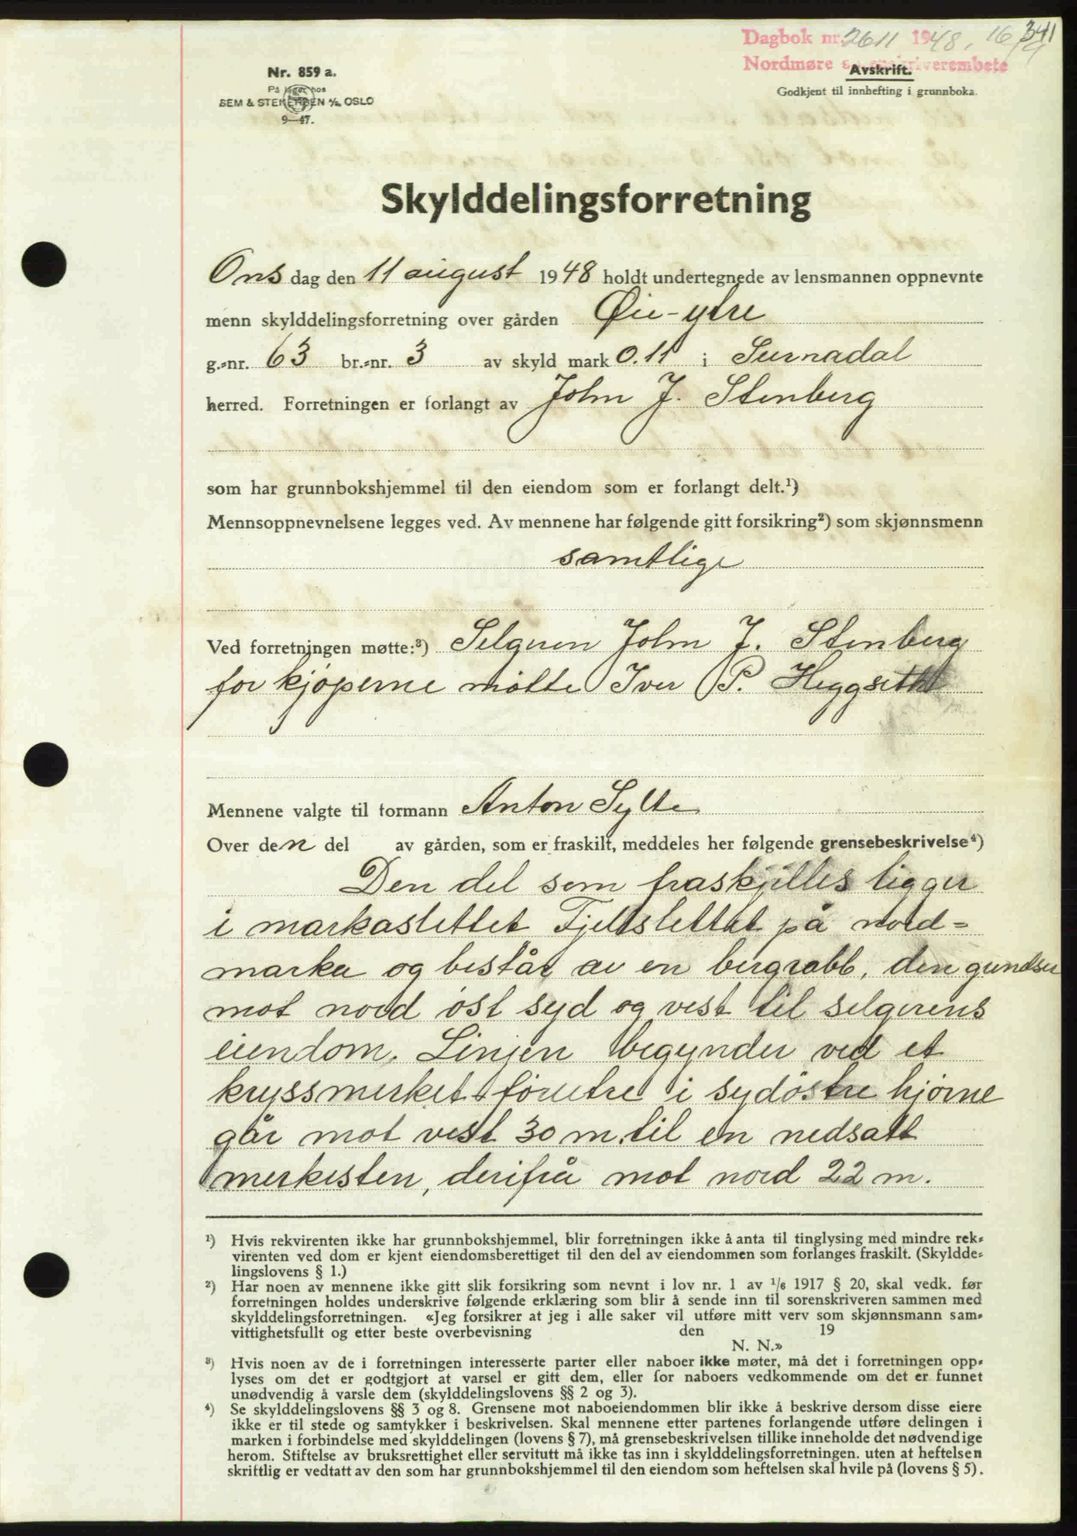 341
Dagbok nr. 2611 1948, 16/9
Nordmøre sorenskriverembete
Avskrift.
Godkjent til innhefting i grunnboka.
Nr. 859 a.
På lager hos
SEM & STENERSEN A/S OSLO
9—47.
Skylddelingsforretning
Ons dag den 11 august 1948 holdt undertegnede av lensmannen oppnevnte
menn skylddelingsforretning over gården Øie-ytre
g.-nr. 63 br.-nr. 3 av skyld mark 0.11 i Surnadal
herred. Forretningen er forlangt av John J. Stenberg
som har grunnbokshjemmel til den eiendom som er forlangt delt.¹)
Mennsoppnevnelsene legges ved. Av mennene har følgende gitt forsikring²) som skjønnsmenn
samtlige
Ved forretningen møtte:³) Selgeren John J. Stenberg
for kjøperne møtte Iver P. Heggseth
Mennene valgte til formann Anton Sylte
Over den del av gården, som er fraskilt, meddeles her følgende grensebeskrivelse⁴)
Den del som fraskjilles ligger
i markaslettet Fjellslettet på nord-
marka og består av en bergrabb, den
mot nord öst syd og vest til selgerens
eiendom. Linjen begynder ved et
kryssmerket i sydöstre hjörne
går mot vest 30 m. til en nedsatt
merkesten, derifrå mot nord 22 m.
¹) Hvis rekvirenten ikke har grunnbokshjemmel, blir forretningen ikke å anta til tinglysing med mindre rek-
virenten ved dom er kjent eiendomsberettiget til den del av eiendommen som forlanges fraskilt. (Skyldde-
lingslovens § 1.)
²) Har noen av mennene ikke gitt slik forsikring som nevnt i lov nr. 1 av ¹/₆ 1917 § 20, skal vedk. før
forretningen holdes underskrive følgende erklæring som blir å sende inn til sorenskriveren sammen med
skylddelingsforretningen. «Jeg forsikrer at jeg i alle saker vil utføre mitt verv som skjønnsmann sam-
vittighetsfullt og etter beste overbevisning den 19
N. N.»
³) Hvis noen av de i forretningen interesserte parter eller naboer ikke møter, må det i forretningen opp-
lyses om det er godtgjort at varsel er gitt dem, eller for naboers vedkommende om det er funnet
unødvendig å varsle dem (skylddelingslovens §§ 2 og 3).
⁴) Se skylddelingslovens §§ 3 og 8. Grensene mot naboeiendommen blir ikke å beskrive dersom disse eiere
ikke er til stede og samtykker i beskrivelsen. Skal mennene etter partenes forlangende utføre delingen i
marken i forbindelse med skylddelingen (lovens § 7), må grensebeskrivelsen tillike inneholde det nødvendige
herom. Stiftelse av bruksrettighet eller servitutt må ikke tas inn i skylddelingsforretningen. uten at heftelsen
skriftlig er vedtatt av den som har grunnbokshjemmel til den eiendom som heftelsen skal hvile på (lovens § 5).